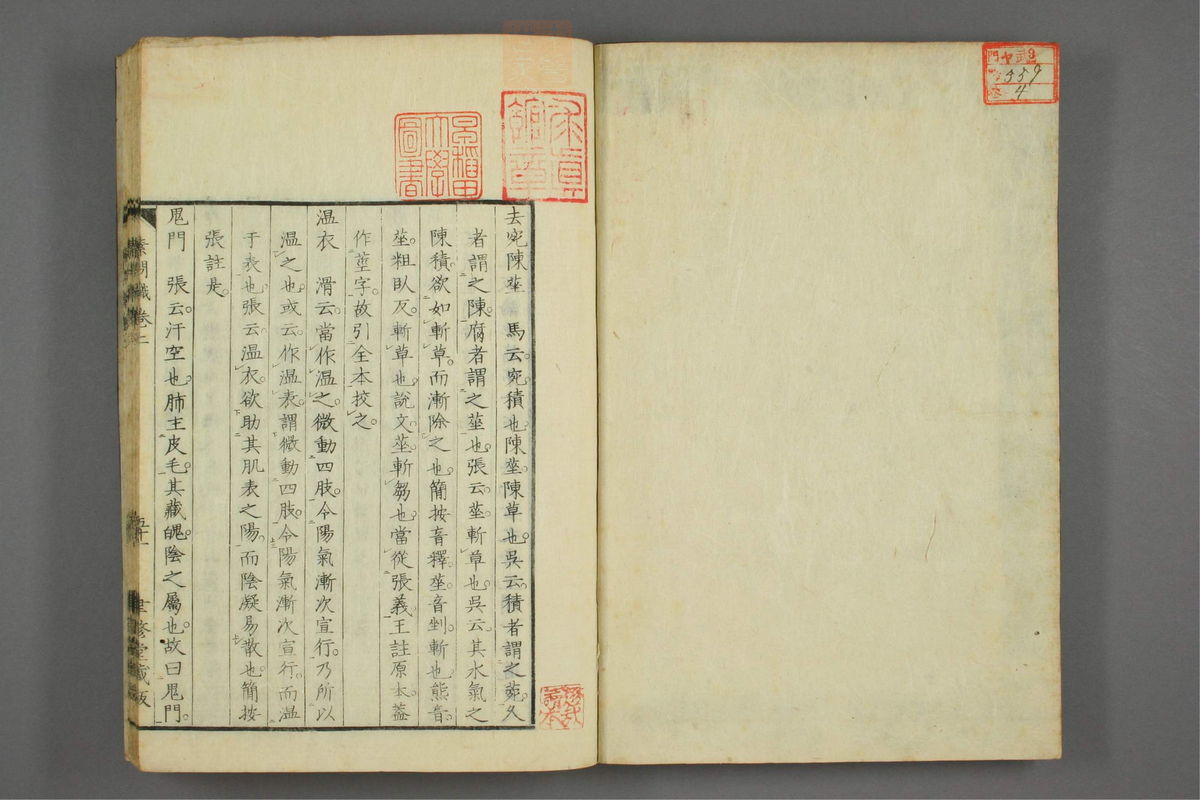 去宛陳莝　馬云宛積也陳莝陳草也吳云積者謂之菀久
者謂之陳腐者謂之莝也張云莝斬草也吳云其水氣之
陳積欲如斬草而漸除之也簡按音釋莝音剉斬也熊音
莝粗臥反斬草也說文莝斬芻也當從張義王註原本蓋
作莖字故引全本挍之
温衣　滑云當作温之微動四肢令陽氣漸次宣行乃所以
温之也或云作温表謂微動四肢令陽氣漸次宣行而温
于表也張云温衣欲助其肌表之陽而陰凝易散也簡按
張註是
鬼門　張云汗空也肺主皮毛其藏魄陰之屬也故曰鬼門
素問識卷二
五十一
聿修堂藏版
早稲田大學圖書
門 ヤ 9
359
4